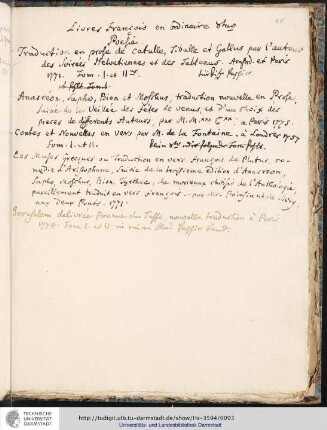 Livres François en ordinaire 8tavo
Poesie
Traduction en prose de Catulle, Tibulle et Gallus par l'auteur
des Soirées Helvetiennes et des Tableaux. Amsterd. et Paris
1771. Tom. I. et II.
Anacreon, Sapho, Bion et Moschus, traduction nouvelle en Prose,
suivie de la Veillée des fêtes de Venus, et d'un choix des
pieces de differents Auteurs par M. M.*** C.** à Paris 1775.
Contes et Nouvelles en vers par M. de la Fontaine, à Londres 1757
Tom. I. et II.
Les Muses grecques ou Traduction en vers François de Plutus, co-
medie d'Aristophane, suivie de la troisieme edition d'Anacreon,
Sapho, Moschus, Bion, Tyrthée, de morceaux choisis de l'Anthologie,
pareillement traduits en vers françois par Mr. Poinsinet de Sivry,
aux Deux Ponts. 1771.
Jerusalem delivrée Poeme du Tasse, nouvelle traduction à Paris
1774. Tom. I. et II.
TECHNISCHE
UNIVERSITÄT
DARMSTADT
http://tudigit.ulb.tu-darmstadt.de/show/Hs-3594/0093
Universitäts- und Landesbibliothek Darmstadt